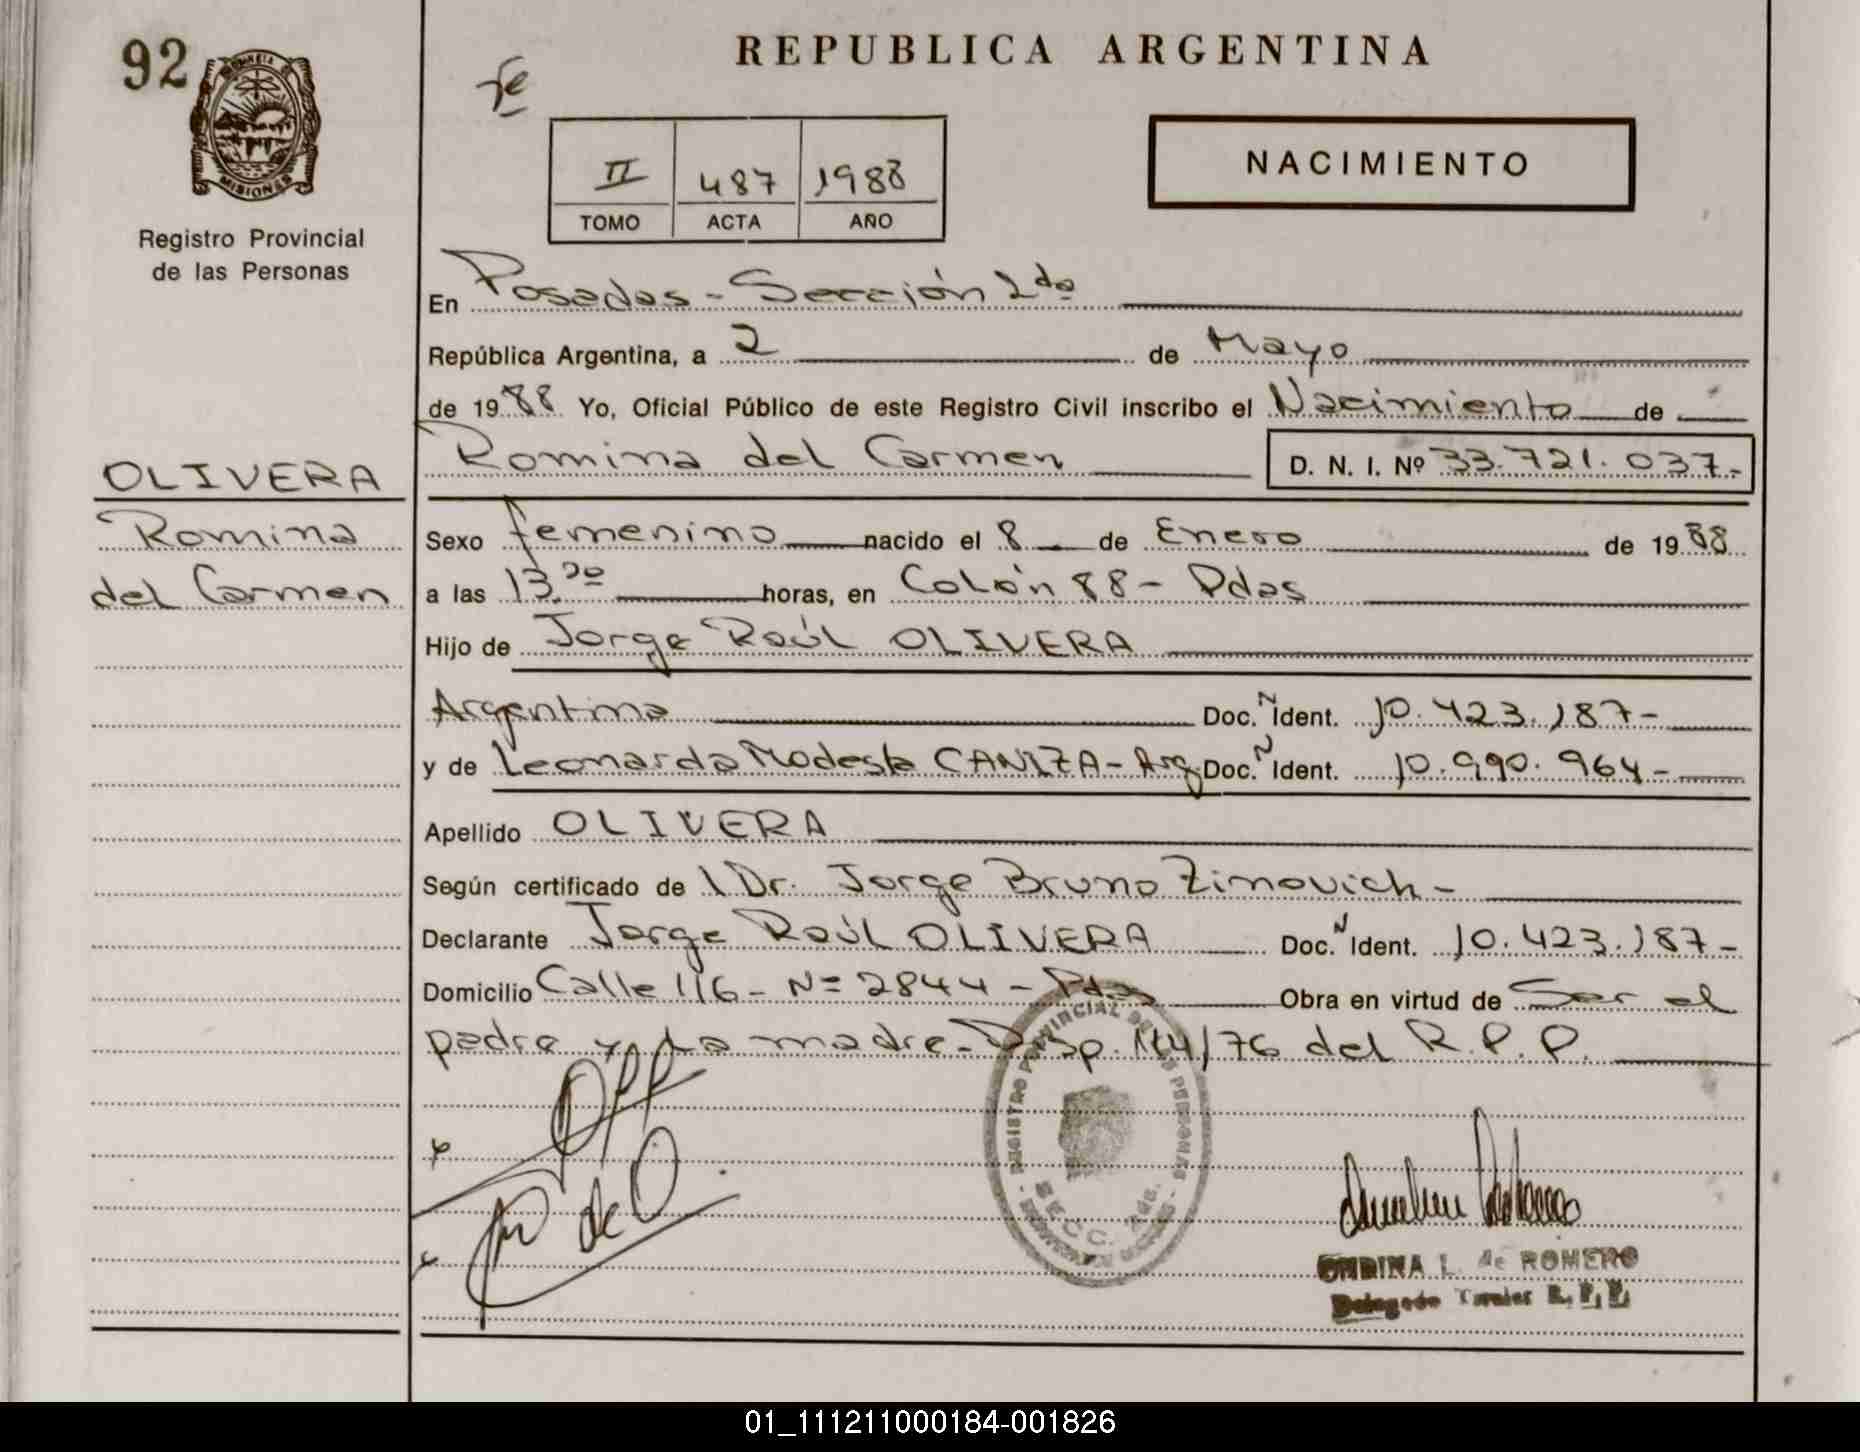 92
REPUBLICA ARGENTINA
MISIONES
Registro Provincial
de las Personas
II 487 1988
TOMO ACTA AÑO
NACIMIENTO
En Posadas - Sección 2da
República Argentina, a 2 de Mayo
de 1988 Yo, Oficial Público de este Registro Civil inscribo el Nacimiento de
Romina del Carmen D. N. I. Nº 33.721.037-
OLIVERA
Romina
del Carmen
Sexo femenino nacido el 8 de Enero de 1988
a las 13. horas, en Colón 88 - Pdas
Hijo de Jorge Raúl OLIVERA
Argentina Doc. N Ident. 10.423.187-
y de Leonarda Modesta CANIZA - Arg Doc. N Ident. 10.990.964-
Apellido OLIVERA
Según certificado de l Dr. Jorge Bruno Zimovich -
Declarante Jorge Raúl OLIVERA Doc. N Ident. 10.423.187-
Domicilio Calle 116 - Nº 2844 - Pdas Obra en virtud de Ser el
padre y la madre - Disp. 144/76 del R.P.P.
REGISTRO PROVINCIAL DE LAS PERSONAS
SECC. 2da.
ONDINA L. de ROMERO
Delegado Titular R.P.P.
01_111211000184-001826